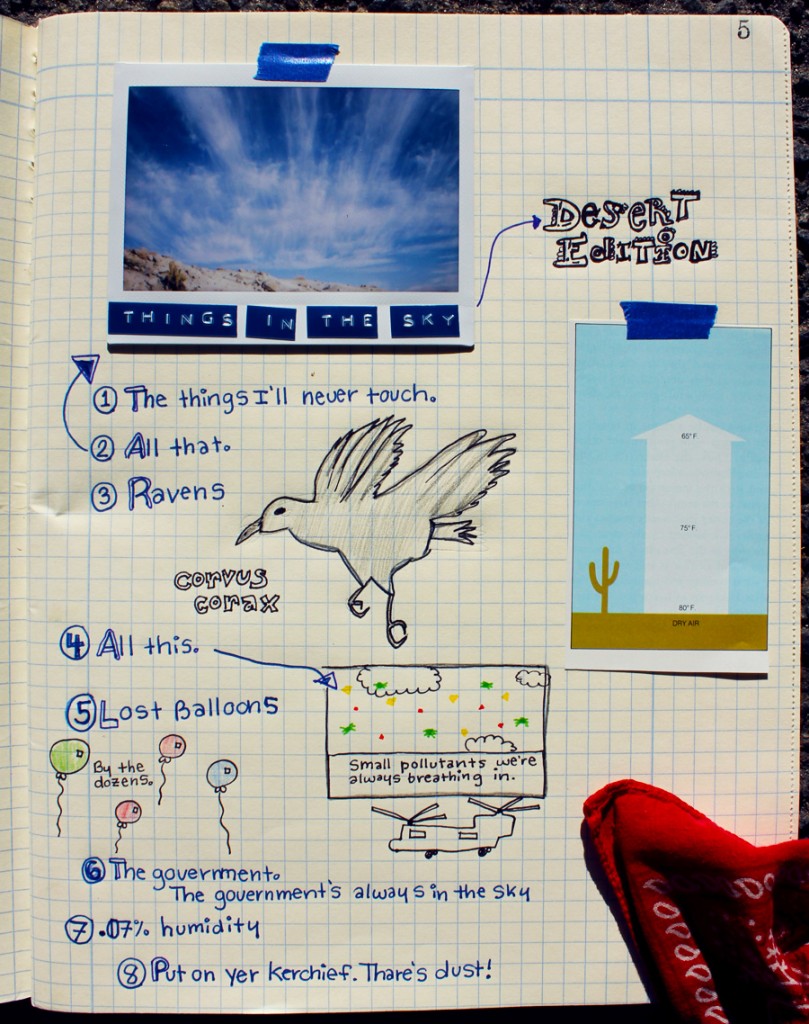 5
DESERT
EDITION
THINGS IN THE SKY
① The things I'll never touch.
② All that.
③ Ravens
65° F.
75° F.
80° F.
DRY AIR
corvus
corax
④ All this.
⑤ Lost Balloons
By the
dozens.
Small pollutants we're
always breathing in.
⑥ The government.
The government's always in the sky
⑦ .07% humidity
⑧ Put on yer kerchief. Thare's dust!